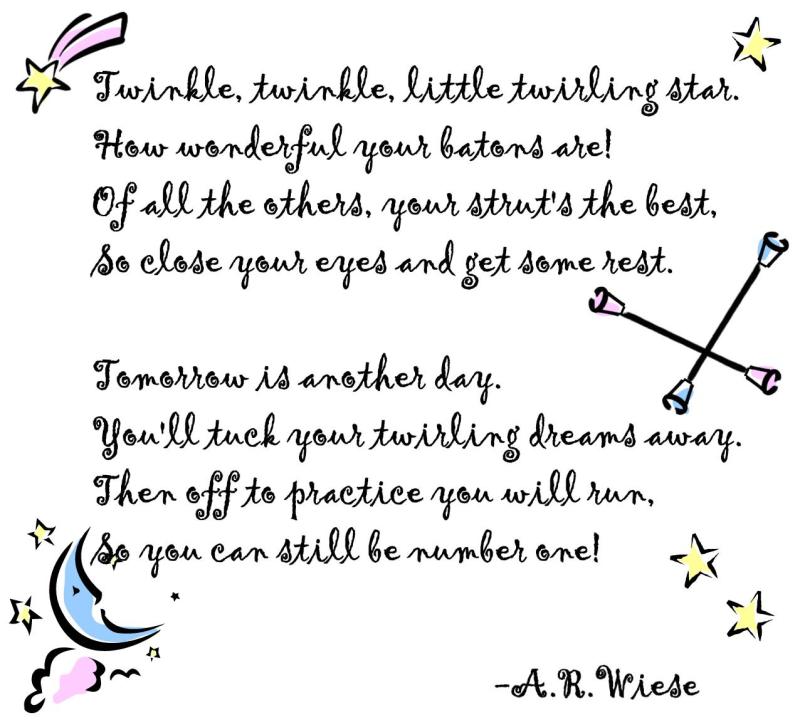 Twinkle, twinkle, little twirling star.
How wonderful your batons are!
Of all the others, your strut's the best,
So close your eyes and get some rest.
Tomorrow is another day.
You'll tuck your twirling dreams away.
Then off to practice you will run,
So you can still be number one!
-A.R.Wiese